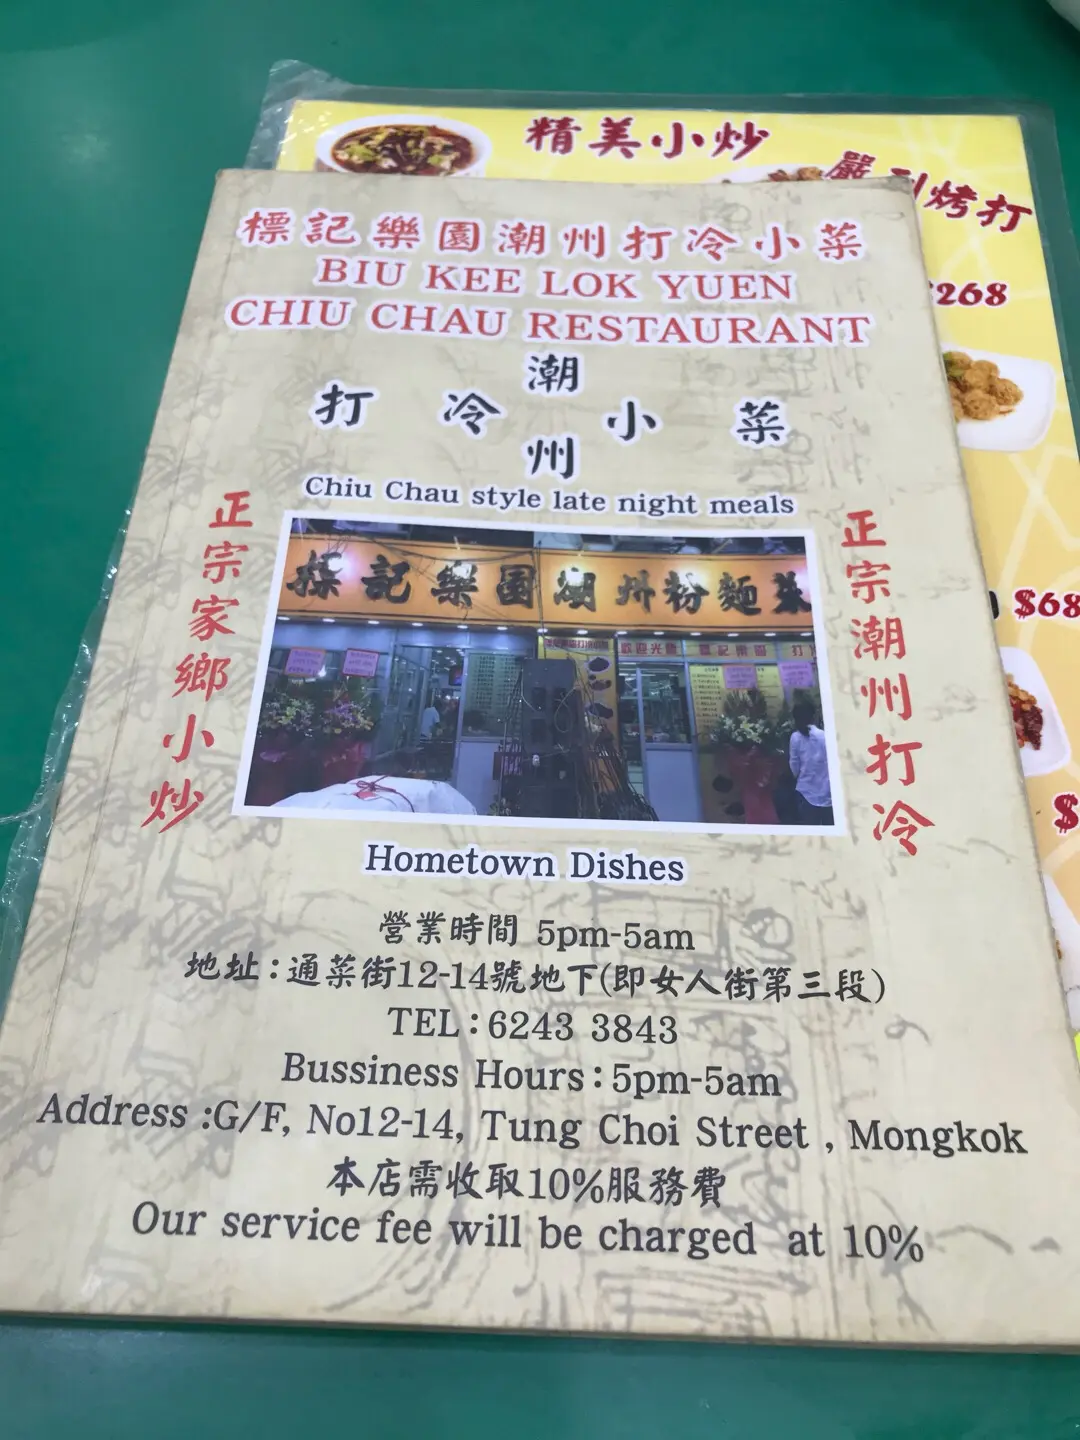 精美小炒
烤打
268
標記樂園潮州打冷小菜
BIU KEE LOK YUEN
CHIU CHAU RESTAURANT
潮州
打冷小菜
Chiu Chau style late night meals
正宗家鄉小炒
標記樂園潮州粉麵菜
歡迎光臨
正宗潮州打冷
$68
$
Hometown Dishes
營業時間 5pm-5am
地址:通菜街12-14號地下(即女人街第三段)
TEL:6243 3843
Bussiness Hours:5pm-5am
Address :G/F, No12-14, Tung Choi Street , Mongkok
本店需收取10%服務費
Our service fee will be charged at 10%